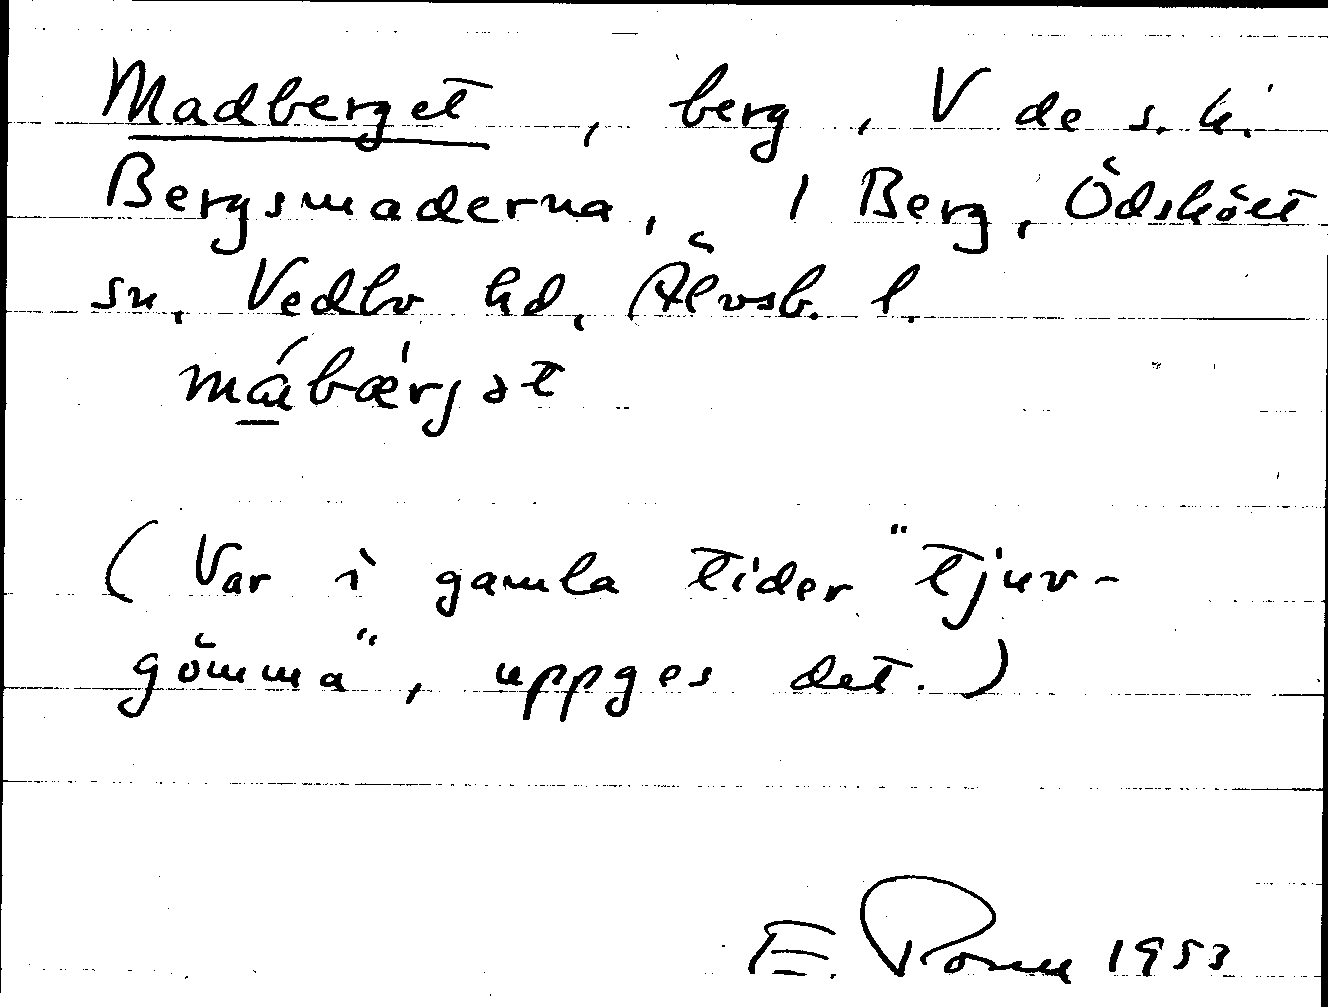 Madberget, berg, V de s. k.
Bergsmaderna, 1 Berg, Ödskölt
sn, Vedbo hd, Älvsb. l.
mábæ̀rjət
(Var i gamla tider "tjuv-
gömma", uppges det.)
E. 1953